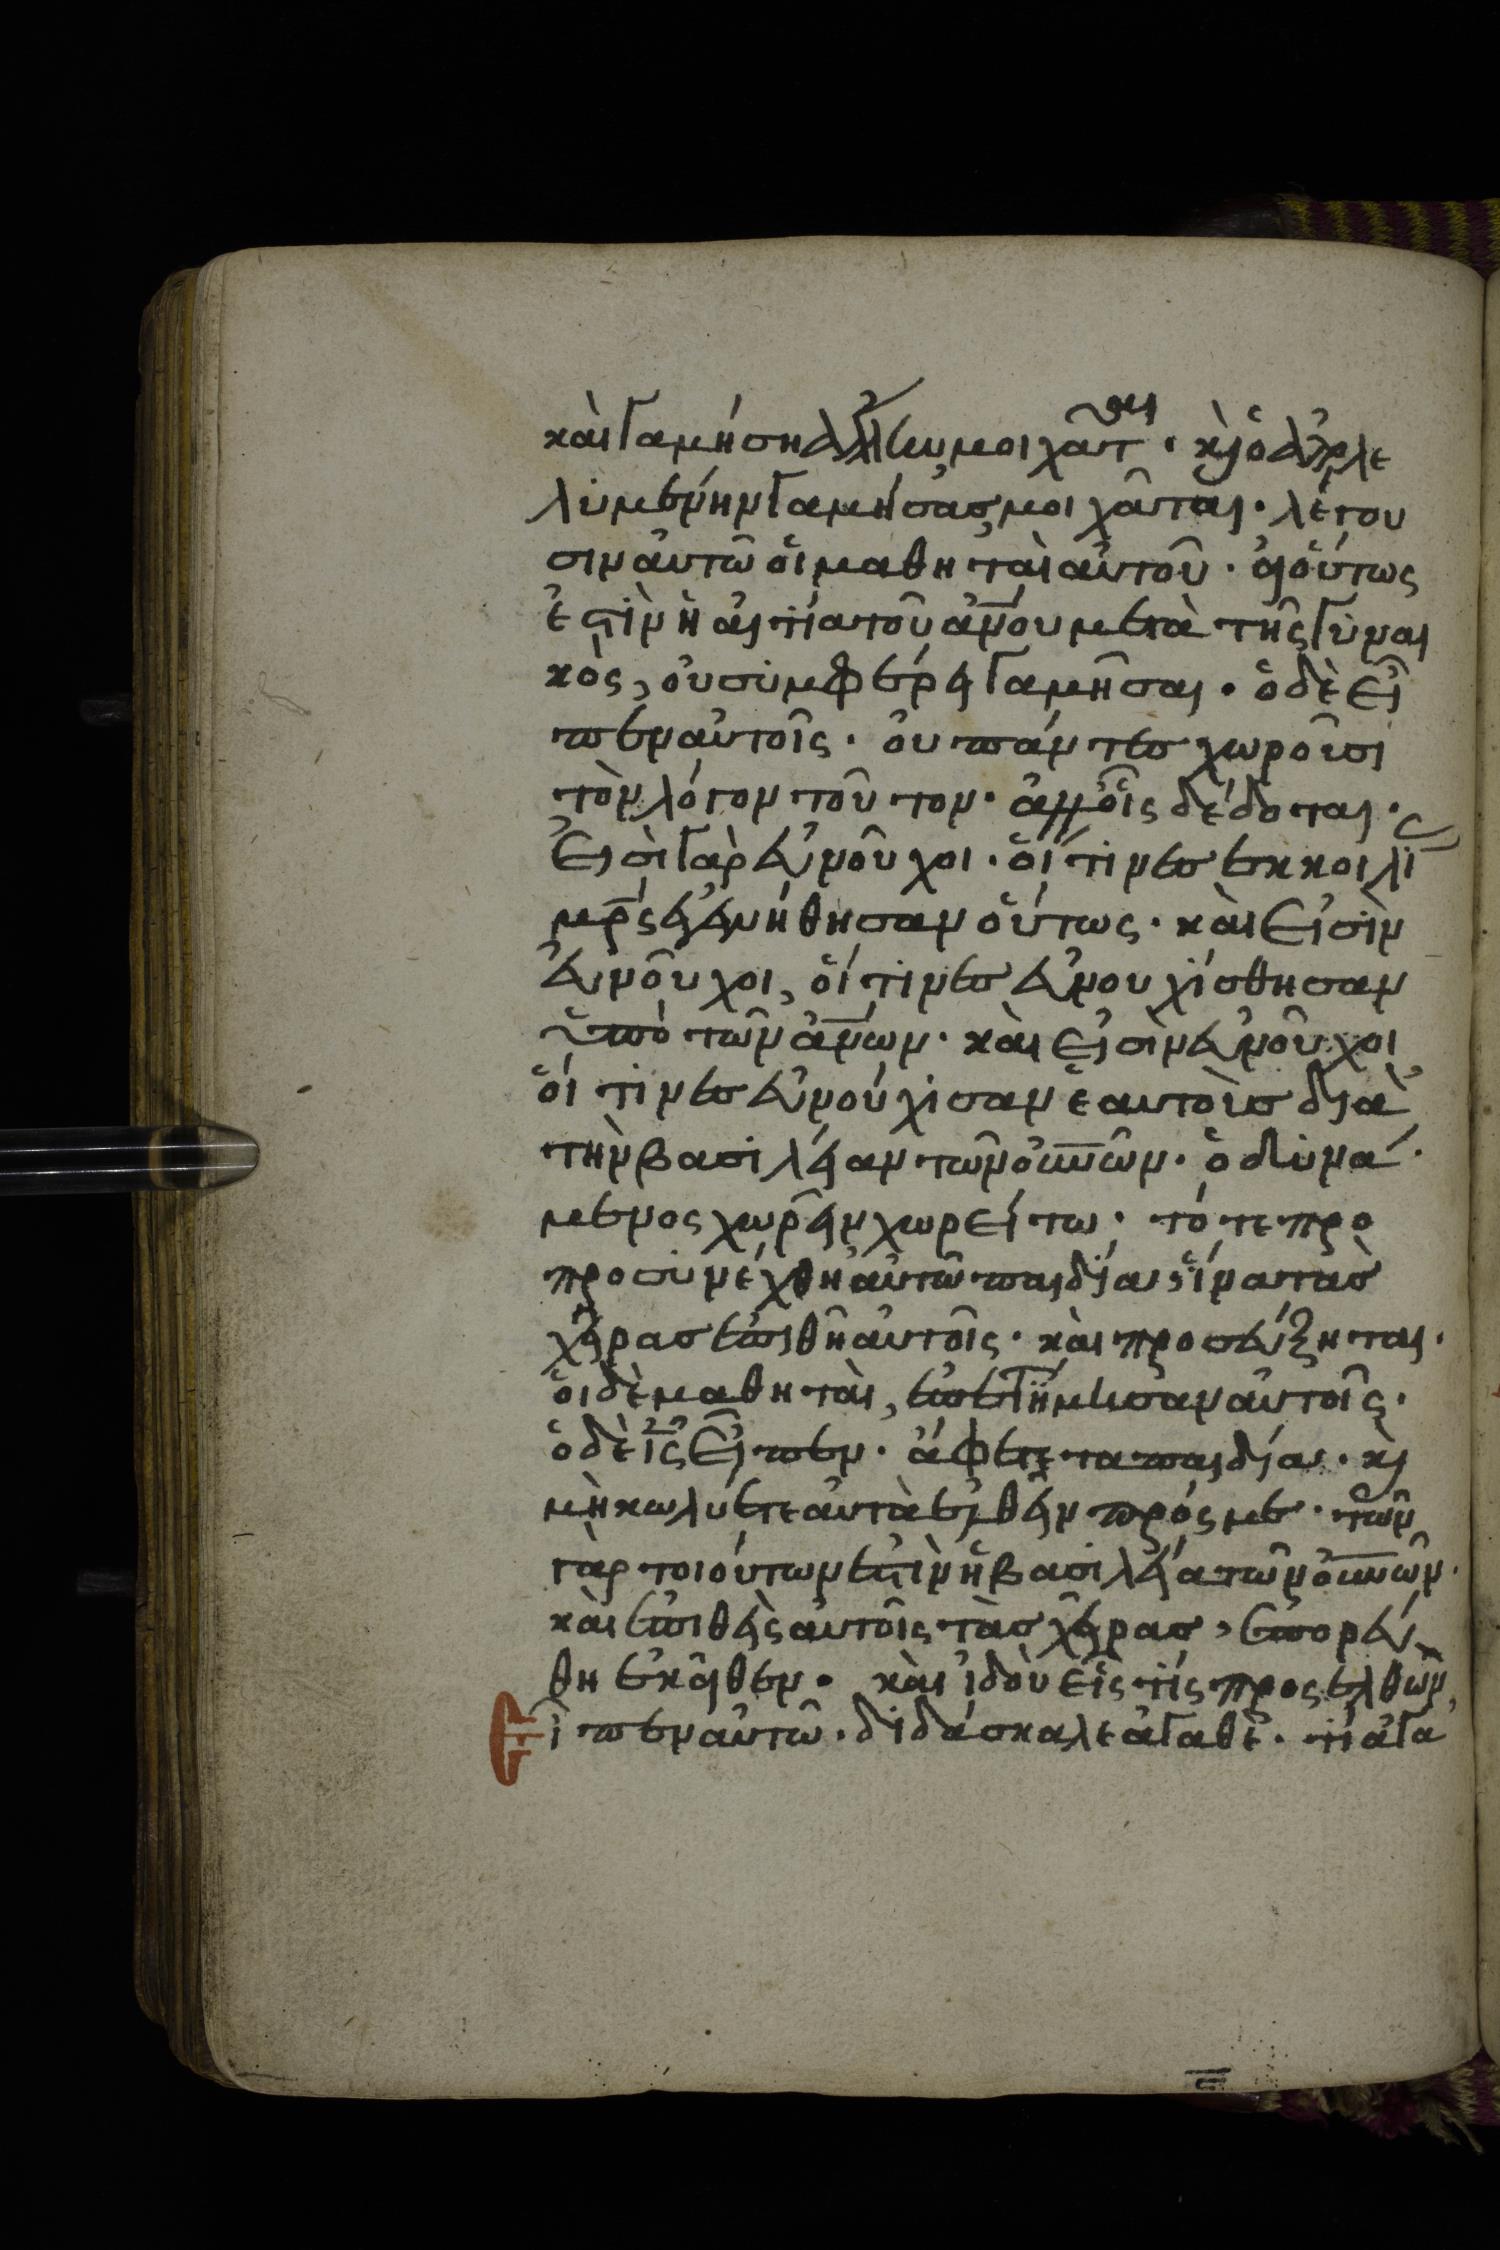 καὶ γαμήση ἄλλην μοιχᾶται · κ(αὶ) ὁ ἀπολε
λυμένην γαμήσας μοιχᾶται · λέγου
σιν αὐτῶ οἱ μαθηταὶ αὐτοῦ · εἰ οὕτως
ἐστὶν ἡ αἰτία τοῦ ἀν̅ου μετὰ τῆς γυναι
κὸς, οὐ συμφέρει γαμῆσαι · ὁ δὲ εἶ
πεν αὐτοῖς · οὐ πάντες χωροῦσι
τὸν λόγον τοῦτον · ἀλλ' οἷς δέδοται ·
εἰσὶ γὰρ εὐνοῦχοι · οἵτινες ἐκ κοιλί
μρ̅ς ἐγεννήθησαν οὕτως · καὶ εἰσὶν
εὐνοῦχοι, οἵτινες εὐνουχίσθησαν
ὑπὸ τῶν ἀν̅ων · καὶ εἰσὶν εὐνοῦχοι
οἵτινες εὐνούχισαν ἑαυτοὺς διὰ
τὴν βασιλείαν τῶν οὐν̅ῶν · ὁ δυνά
μενος χωρεῖν χωρείτω · τότε προ
προσυνέχθη αὐτῶ παιδία, ἵνα τὰς
χεῖρας ἐπιθῆ αὐτοῖς · καὶ προσεύξηται ·
οἱ δὲ μαθηταὶ, ἐπετίμησαν αὐτοῖς ·
ὁ δὲ ι̅ς εἶπεν · ἄφετε τα παιδία · κ(αὶ)
μὴ κωλύετε αὐτὰ ἐλθεῖν πρός με · τῶν
γὰρ τοιούτων ἐστὶν ἡ βασιλεία τῶν οὐν̅ῶν ·
καὶ ἐπιθεὶς αὐτοῖς τὰς χεῖρας, ἐπορεύ
θη ἐκεῖθεν · καὶ ἰδοὺ εἷς τίς προσελθὼν,
εἶπεν αὐτῶ · διδάσκαλε ἀγαθὲ · τί ἀγα